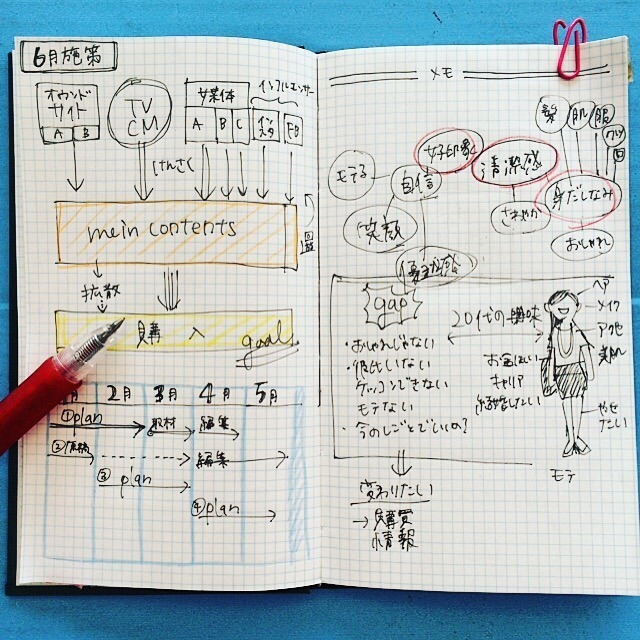 6月施策
オウンド
サイト
A B
TV
CM
媒体
A B C
インフルエンサー
FB
けんさく
main contents
拡散
購入
goal
2月 3月 4月 5月
①plan
取材
編集
②
編集
③plan
④plan
メモ
髪
肌
服
女子印象
清潔感
モテる
自信
身だしなみ
笑顔
さわやか
おしゃれ
優越感
gap
20代の興味
・おしゃれじゃない
・彼氏いない
ケッコンできない
モテない
・今のしごとでいいの?
お金ほしい
キャリア
結婚したい
ヘア
メイク
アクセ
美肌
やせ
たい
モテ
変わりたい
→購買
情報